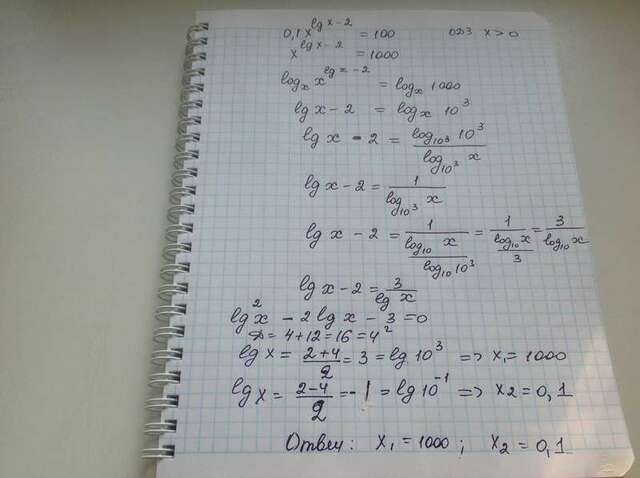 0,1x^(lg x-2) = 100 ОДЗ x>0
x^(lg x-2) = 1000
log_x x^(lg x-2) = log_x 1000
lg x-2 = log_x 10^3
lg x - 2 = log_(10^3) 10^3 / log_(10^3) x
lg x-2 = 1 / log_(10^3) x
lg x - 2 = 1 / (log_10 x / log_10 10^3) = 1 / (log_10 x / 3) = 3 / log_10 x
lg x-2 = 3 / lg x
lg^2 x - 2 lg x - 3 = 0
D = 4+12=16=4^2
lg x = (2+4)/2 = 3 = lg 10^3 => x_1 = 1000
lg x = (2-4)/2 = -1 = lg 10^-1 => x_2 = 0,1
Ответ: x_1 = 1000; x_2 = 0,1